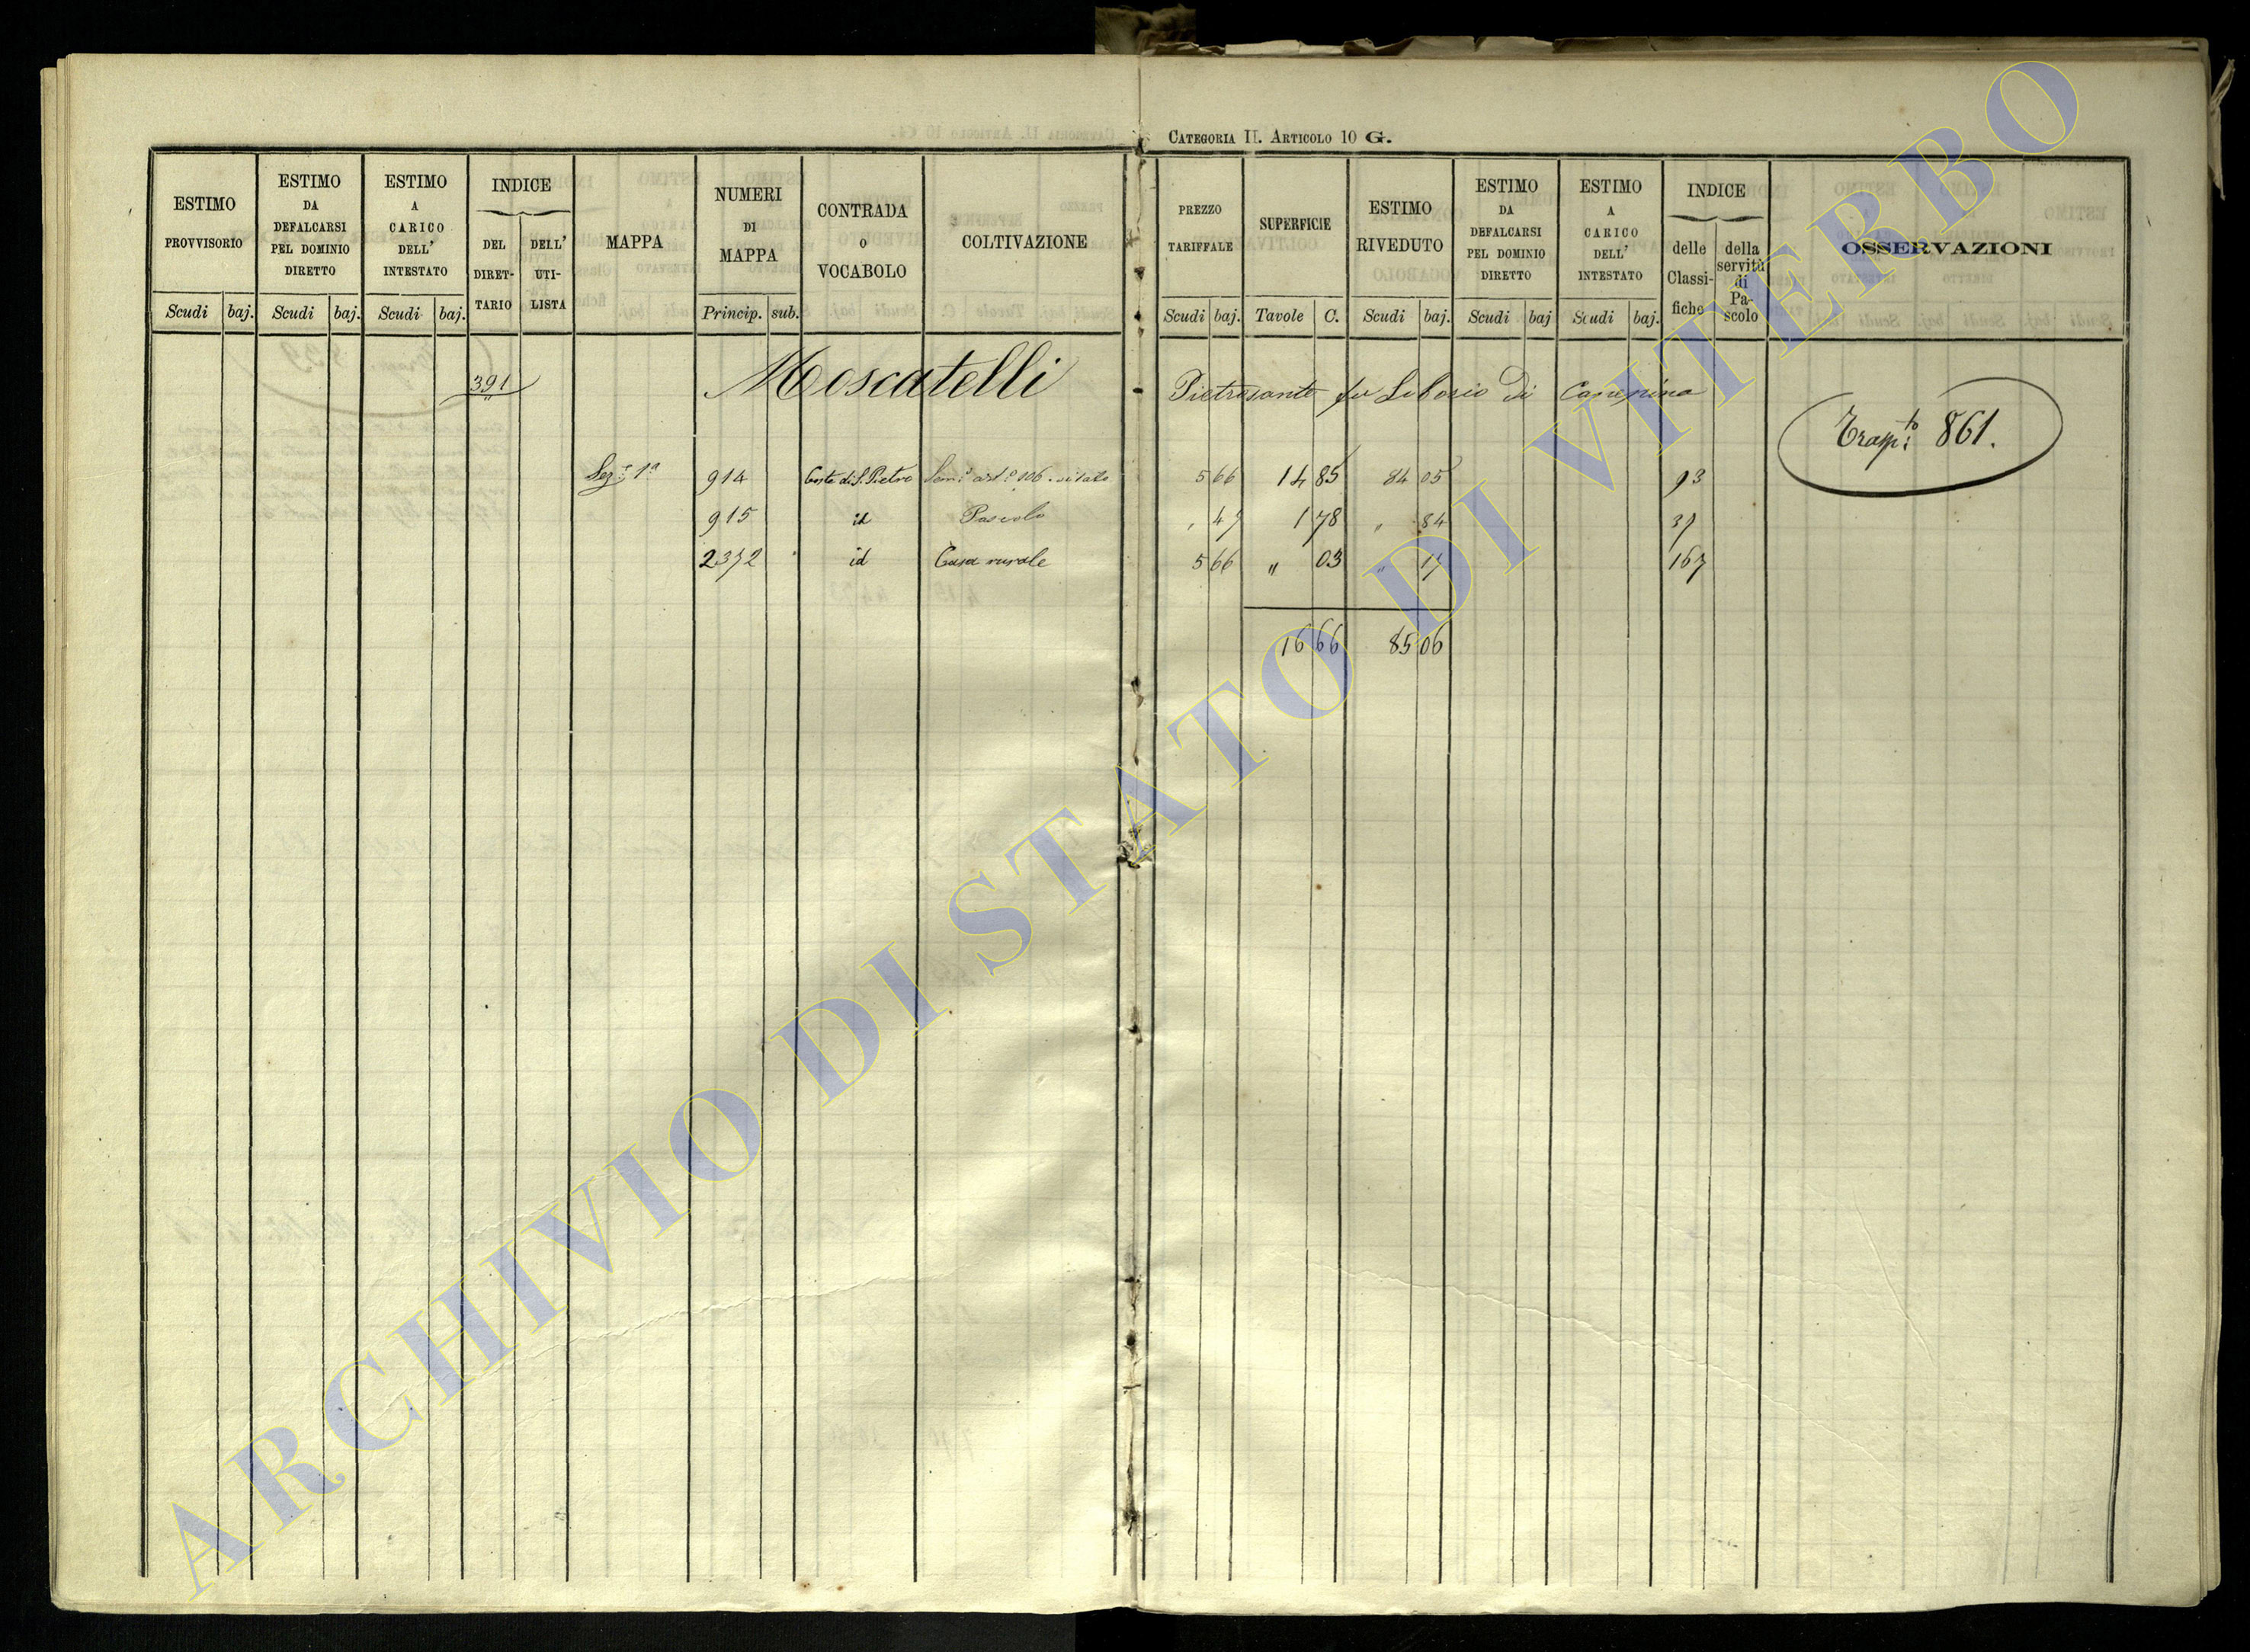 CATEGORIA II. ARTICOLO 10 G.
ESTIMO PROVVISORIO Scudi baj.
ESTIMO DA DEFALCARSI PEL DOMINIO DIRETTO Scudi baj.
ESTIMO A CARICO DELL' INTESTATO Scudi baj.
INDICE DEL DIRET-TARIO DELL' UTI-LISTA
MAPPA
NUMERI DI MAPPA Princip. sub.
CONTRADA O VOCABOLO
COLTIVAZIONE
PREZZO TARIFFALE Scudi baj.
SUPERFICIE Tavole C.
ESTIMO RIVEDUTO Scudi baj.
ESTIMO DA DEFALCARSI PEL DOMINIO DIRETTO Scudi baj
ESTIMO A CARICO DELL' INTESTATO Scudi baj.
INDICE delle Classi-fiche della servitù di Pa-scolo
OSSERVAZIONI
391 Moscatelli Pietrosante fu Liborio di Canepina
Trasp.to 861.
Sez.e 1a 914 Coste di S. Pietro 5 66 14 85 84 05 93
915 id Pascolo " 47 1 78 " 84 37
2372 id Casa rurale 5 66 " 03 " 17 167
16 66 85 06
ARCHIVIO DI STATO DI VITERBO